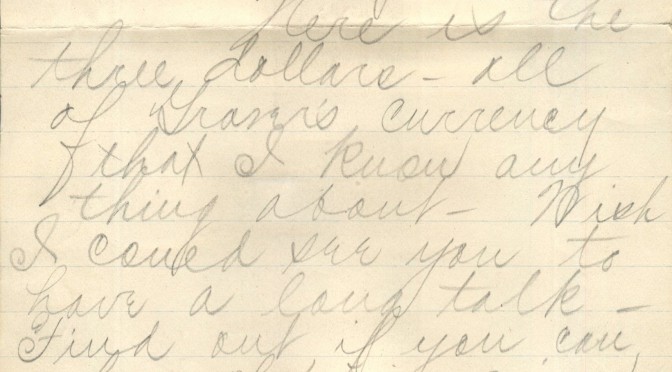 Here is the
three dollars - all
of Graser's currency
that I know any
thing about - Wish
I could see you to
have a long talk -
Find out if you can,